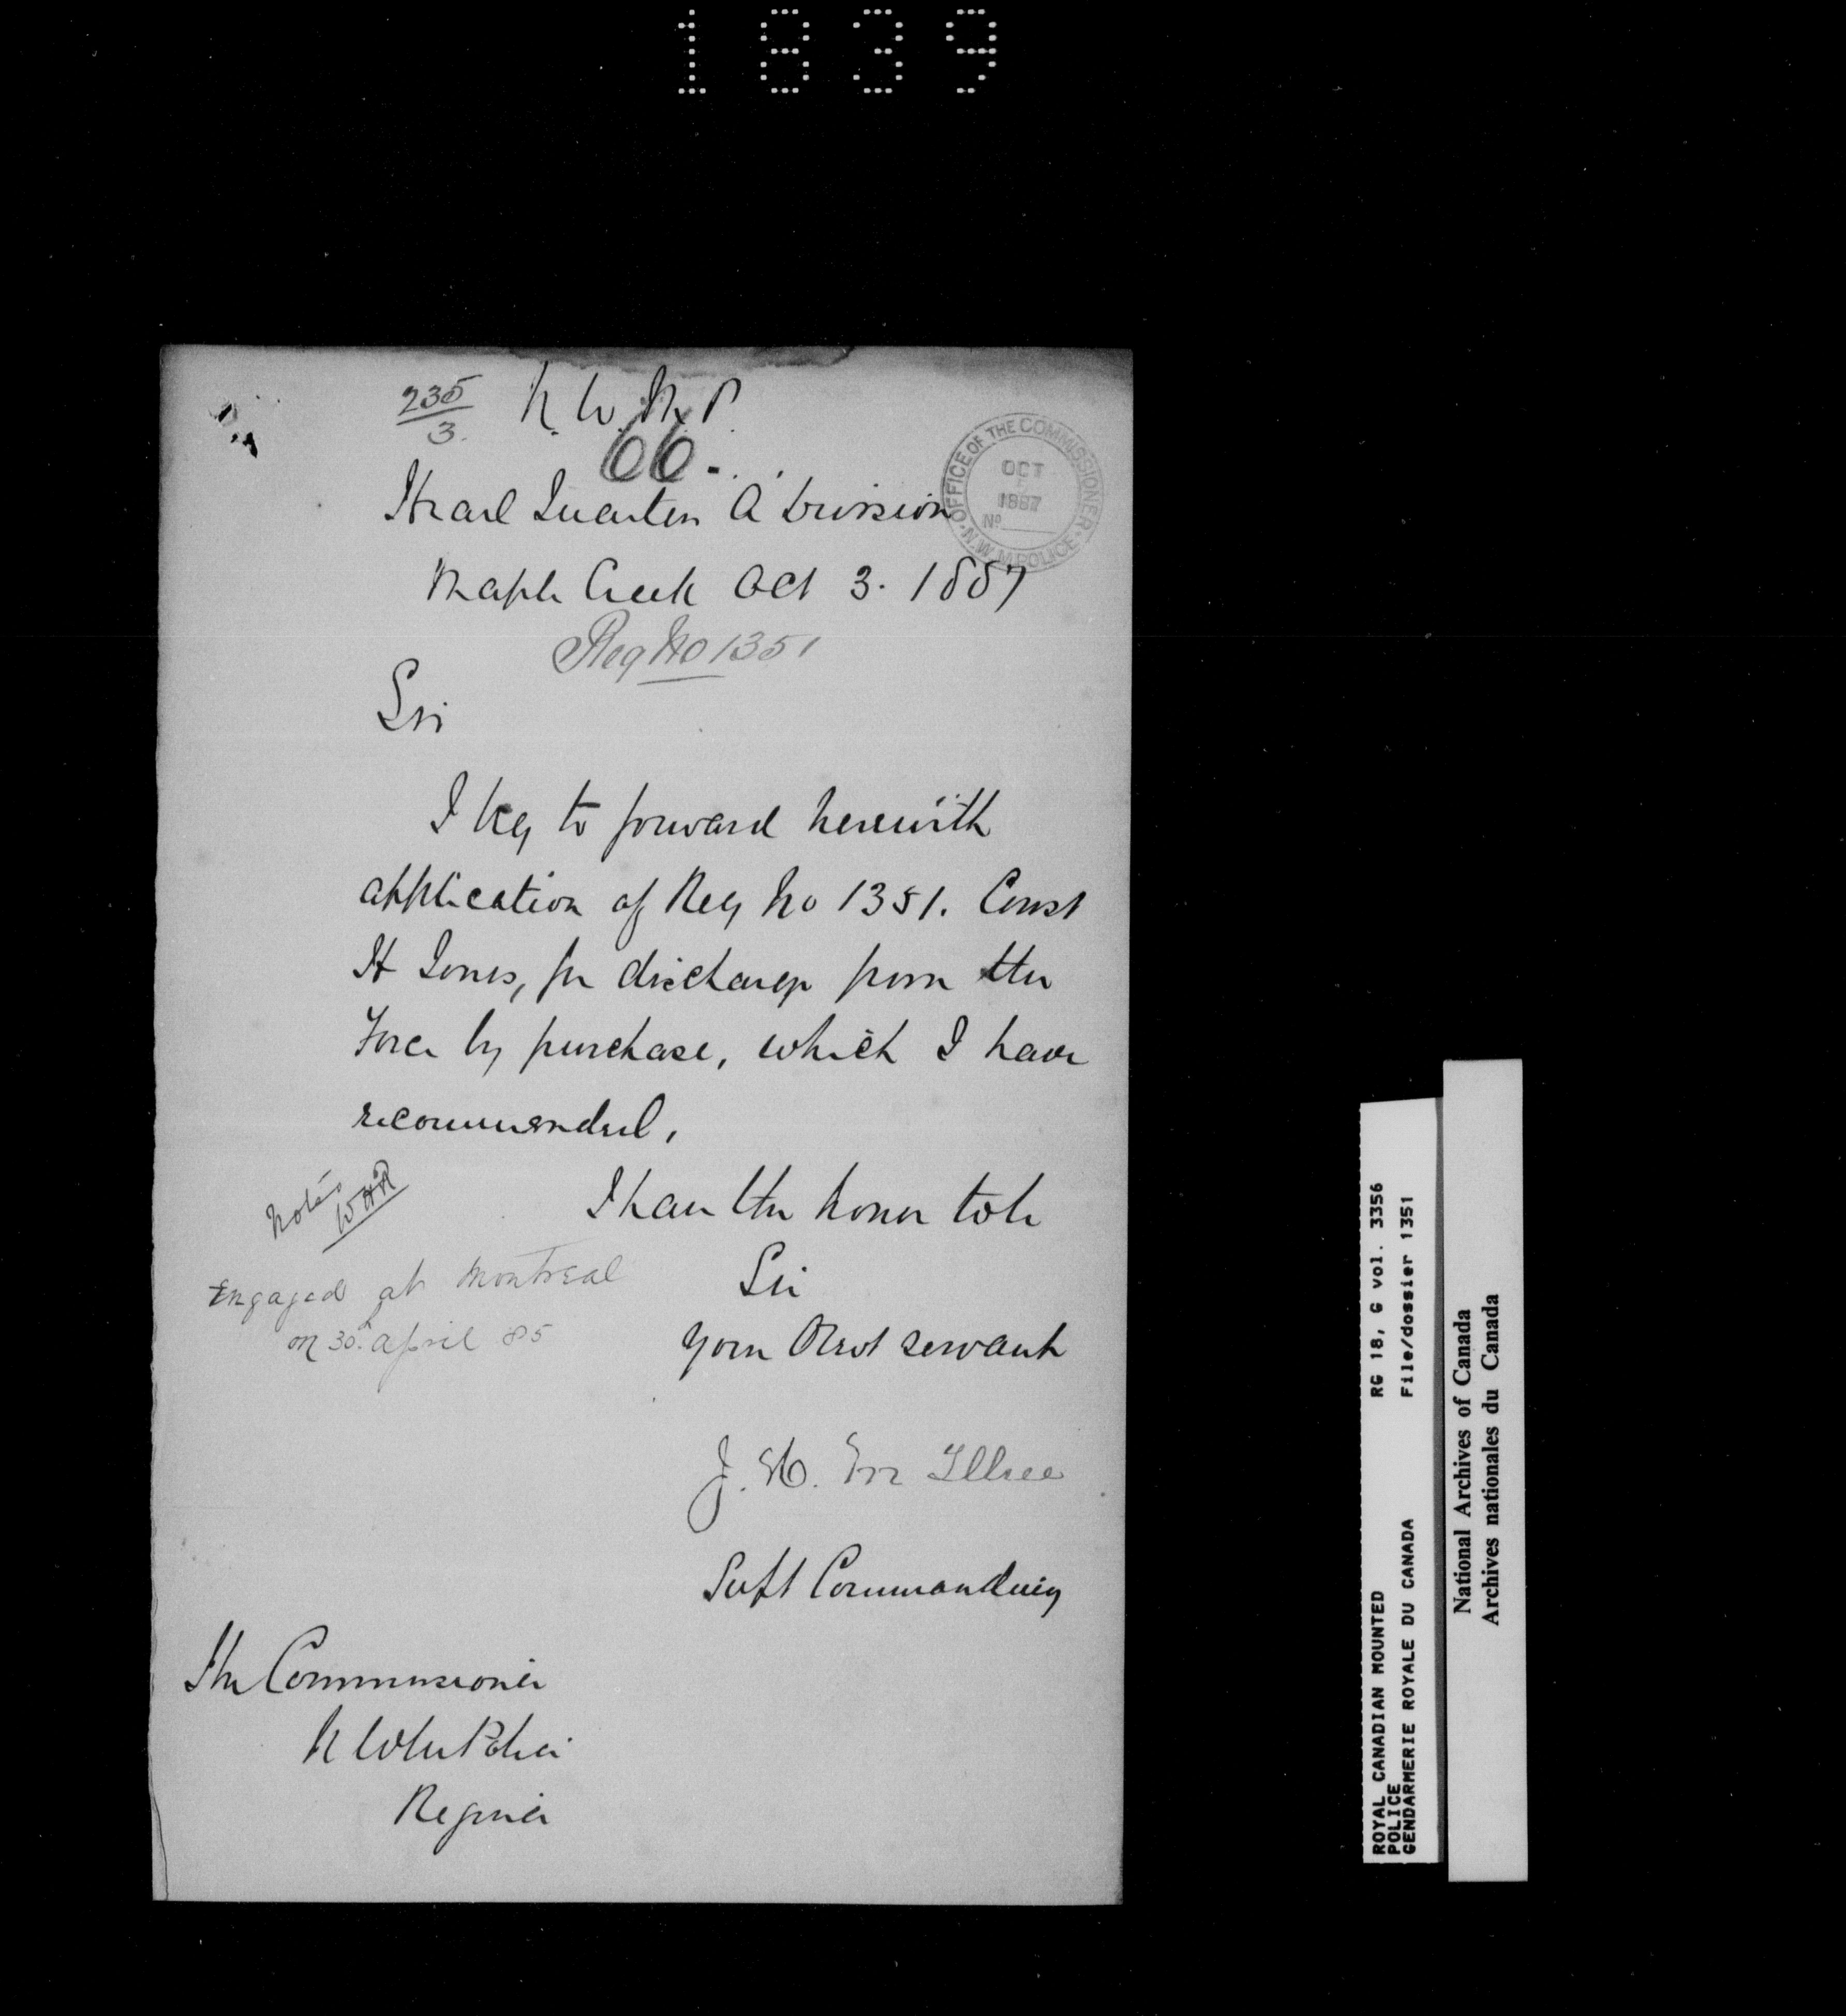 1839
235
3.
N.W.M.P.
66-
Head Quarters A Division
Maple Creek Oct 3. 1887
OFFICE OF THE COMMISSIONER
OCT
1887
No
N.W.M. POLICE
Reg No 1351
Sir
I beg to forward herewith
application of Reg No 1351. Const
H Jones, for discharge from the
Force by purchase, which I have
recommended,
I have the honor to be
Sir
Your Obdt servant
Noted
WHR
Engaged at Montreal
on 30th april 85
J. H.
Supt Commanding
The Commissioner
N W M Police
Regina
ROYAL CANADIAN MOUNTED RG 18, G vol. 3356
POLICE
GENDARMERIE ROYALE DU CANADA File/dossier 1351
National Archives of Canada
Archives nationales du Canada